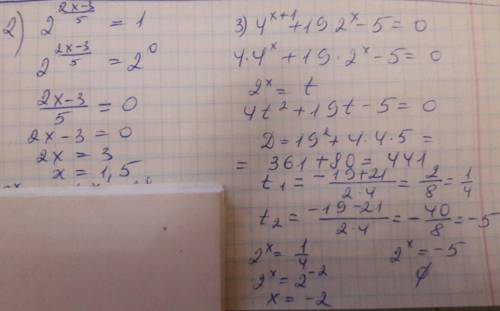 2) 2^((2x-3)/5) = 1
2^((2x-3)/5) = 2^0
(2x-3)/5 = 0
2x-3 = 0
2x = 3
x = 1,5
3) 4^(x+1) + 19·2^x - 5 = 0
4·4^x + 19·2^x - 5 = 0
2^x = t
4t² + 19t - 5 = 0
D = 19² + 4·4·5 =
= 361 + 80 = 441
t₁ = (-19+21)/(2·4) = 2/8 = 1/4
t₂ = (-19-21)/(2·4) = -40/8 = -5
2^x = 1/4 2^x = -5
2^x = 2^(-2) ∅
x = -2